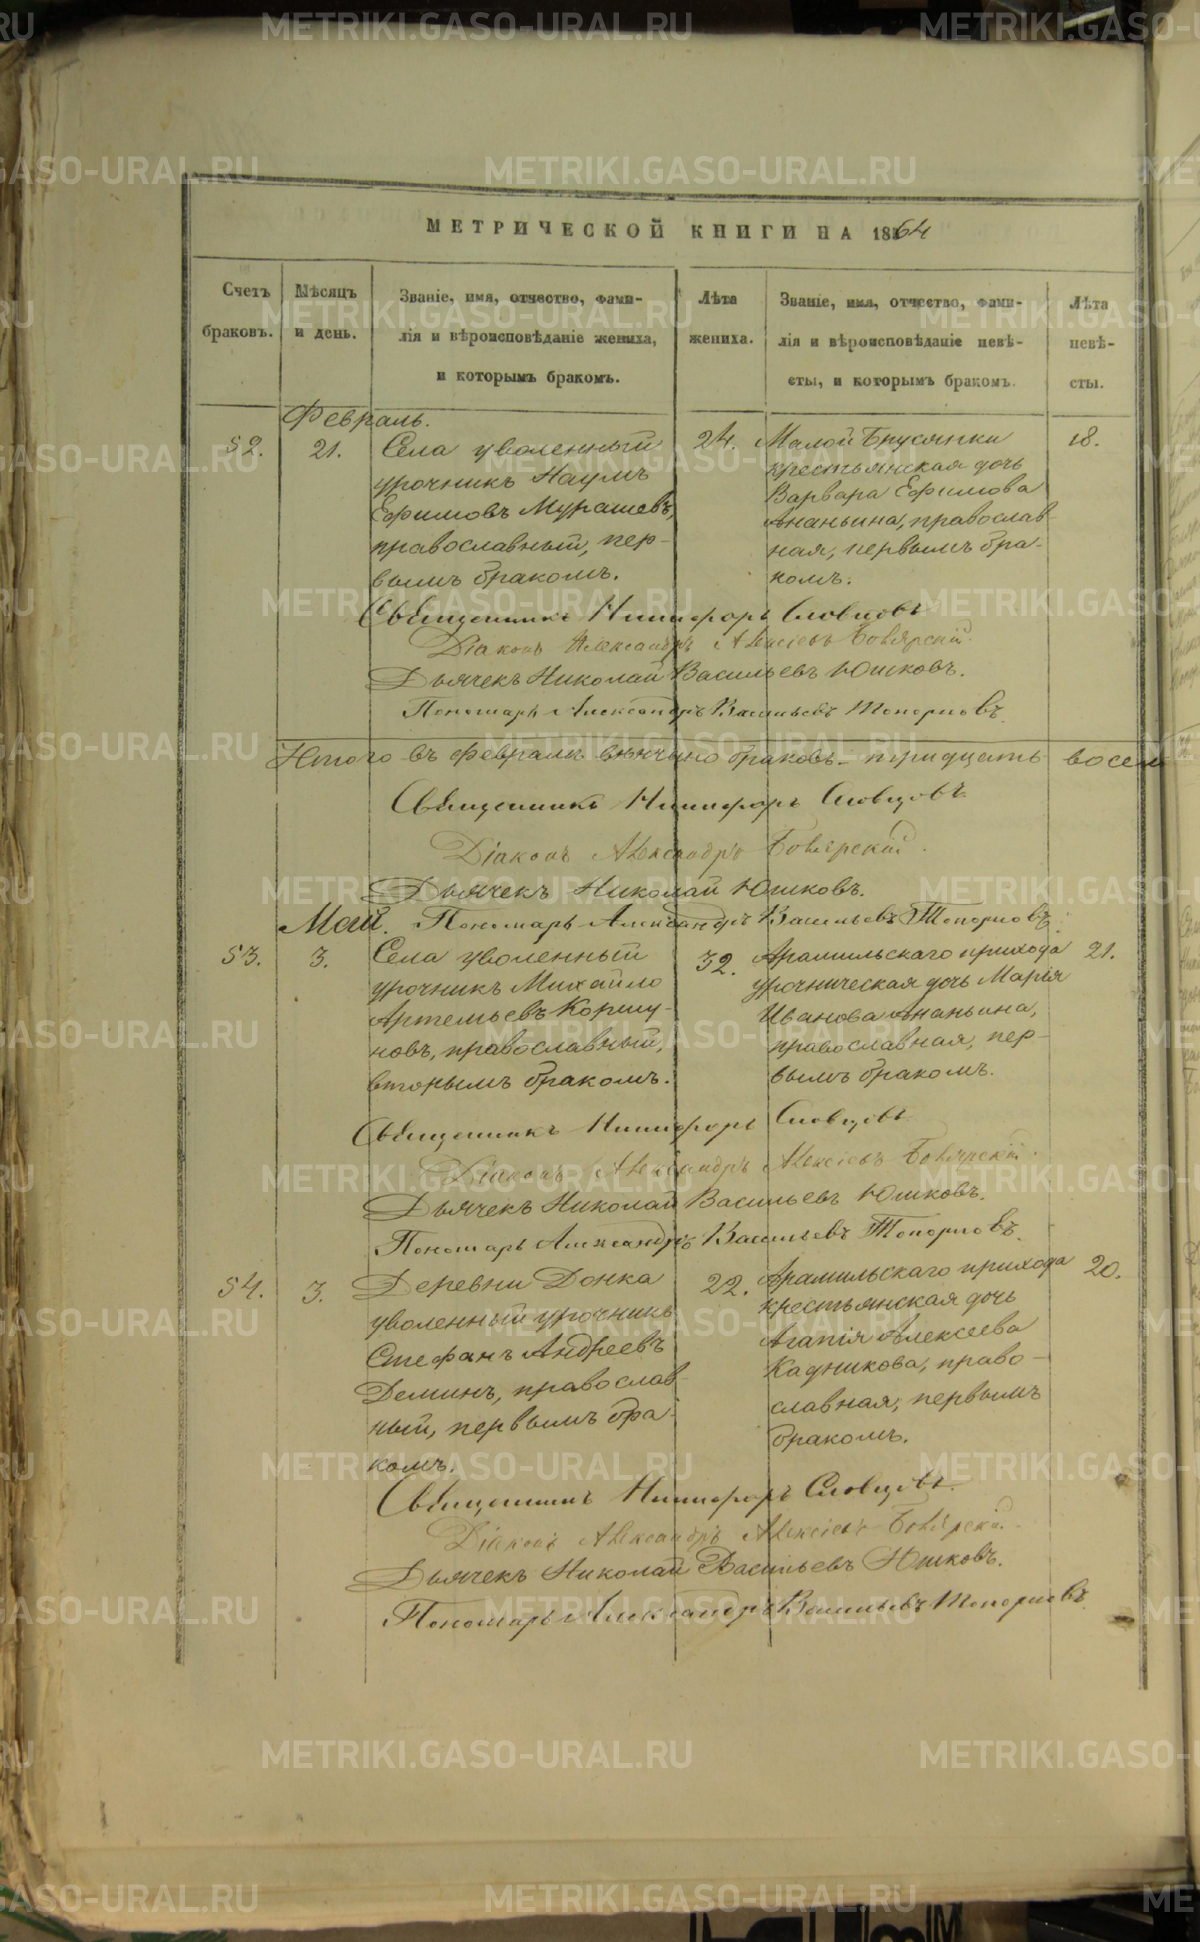 МЕТРИЧЕСКОЙ КНИГИ НА 1864
Счетъ браковъ.
Мѣсяцъ и день.
Званіе, имя, отчество, фами-
лія и вѣроисповѣданіе жениха,
и которымъ бракомъ.
Лѣта жениха.
Званіе, имя, отчество, фами-
лія и вѣроисповѣданіе невѣ-
сты, и которымъ бракомъ.
Лѣта невѣ-
сты.
Февраль.
52.
21.
Села уволенный
урочникъ Наумъ
Ефимовъ Мурашевъ,
православный, пер-
вымъ бракомъ.
24.
Малой Брусянки
крестьянская дочь
Варвара Ефимова
Ананьина, православ-
ная, первымъ бра-
комъ.
18.
Священникъ Никифоръ Словцовъ
Діаконъ Александръ Алексіевъ Боярскій.
Дьячекъ Николай Васильевъ Юшковъ.
Пономарь Александръ Васильевъ Топорковъ.
Итого въ Февралѣ вѣнчано браковъ – тридцать восемь
Священникъ Никифоръ Словцовъ
Діаконъ Александръ Боярскій.
Дьячекъ Николай Юшковъ.
Пономарь Александръ Васильевъ Топорковъ.
Май.
53.
3.
Села уволенный
урочникъ Михайло
Артемьевъ Коршу-
новъ, православный,
вторымъ бракомъ.
32.
Арамильскаго прихода
урочническая дочь Марія
Иванова Ананьина,
православная, пер-
вымъ бракомъ.
21.
Священникъ Никифоръ Словцовъ
Діаконъ Александръ Алексіевъ Боярскій.
Дьячекъ Николай Васильевъ Юшковъ.
Пономарь Александръ Васильевъ Топорковъ.
54.
3.
Деревни Донка
уволенный урочникъ
Стефанъ Андреевъ
Деминъ, православ-
ный, первымъ бра-
комъ.
22.
Арамильскаго прихода
крестьянская дочь
Агапія Алексеева
Кадникова, право-
славная, первымъ
бракомъ.
20.
Священникъ Никифоръ Словцовъ.
Діаконъ Александръ Алексіевъ Боярскій.
Дьячекъ Николай Васильевъ Юшковъ.
Пономарь Александръ Васильевъ Топорковъ
METRIKI.GASO-URAL.RU